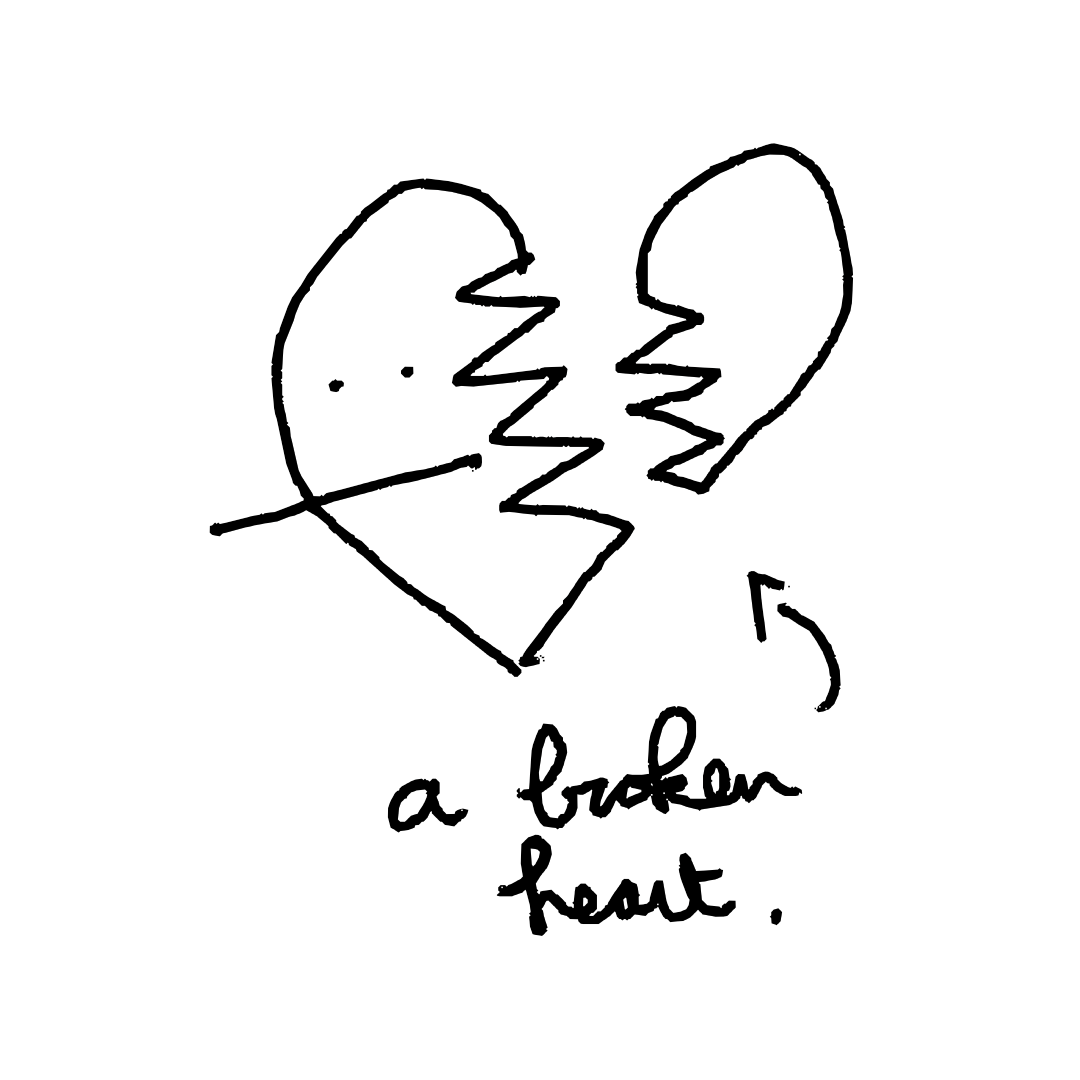 a broken
heart.